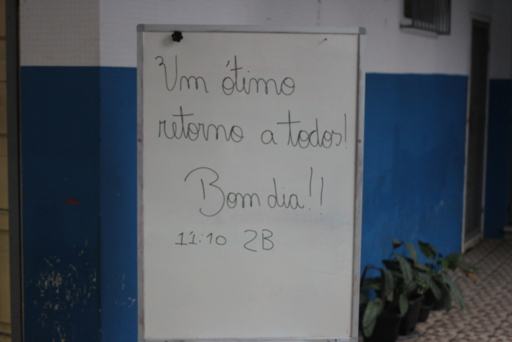 Um ótimo
retorno a todos!
Bom dia!!
11:10 2B